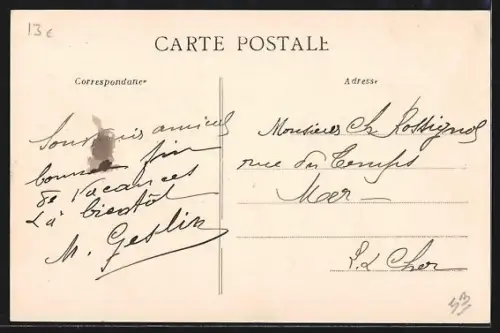 13 €
CARTE POSTALE
Correspondance
Adresse
Souvenirs amicals
bonnes fin
de Vacances
& à bientôt
M. Geslin
Monsieur Ch Rossignol
rue du Temps
Mer
L. & Cher